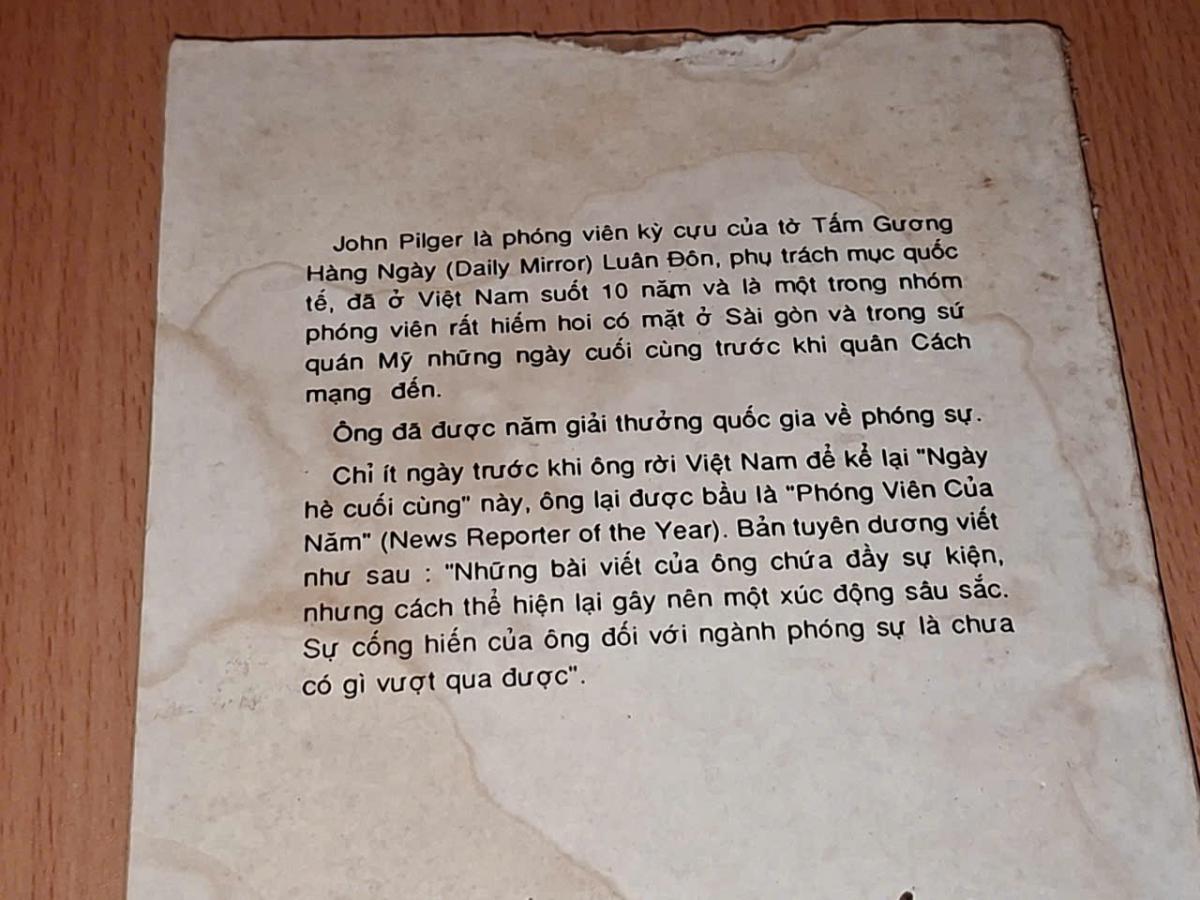 John Pilger là phóng viên kỳ cựu của tờ Tấm Gương
Hàng Ngày (Daily Mirror) Luân Đôn, phụ trách mục quốc
tế, đã ở Việt Nam suốt 10 năm và là một trong nhóm
phóng viên rất hiếm hoi có mặt ở Sài gòn và trong sứ
quán Mỹ những ngày cuối cùng trước khi quân Cách
mạng đến.
Ông đã được năm giải thưởng quốc gia về phóng sự.
Chỉ ít ngày trước khi ông rời Việt Nam để kể lại "Ngày
hè cuối cùng" này, ông lại được bầu là "Phóng Viên Của
Năm" (News Reporter of the Year). Bản tuyên dương viết
như sau : "Những bài viết của ông chứa đầy sự kiện,
nhưng cách thể hiện lại gây nên một xúc động sâu sắc.
Sự cống hiến của ông đối với ngành phóng sự là chưa
có gì vượt qua được".